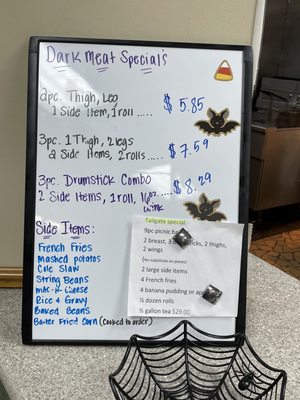 Dark Meat Special's
2pc. Thigh, Leg
1 Side Item, 1 roll ..... $ 5.85
3pc. 1 Thigh, 2 legs
2 Side Items, 2 rolls..... $ 7.59
3pc. Drumstick Combo
2 Side Items, 1 roll, 16oz $ 8.29
drink
Side Items:
French Fries
Mashed potatoes
Cole Slaw
String Beans
Mac-n-Cheese
Rice & Gravy
Baked Beans
Batter Fried Corn (Cooked to order)
Tailgate special
9pc picnic
2 breast, 2 thighs,
2 wings
(No substitute on pieces)
2 large side items
4 French fries
4 banana pudding or
½ dozen rolls
½ gallon tea $29.00